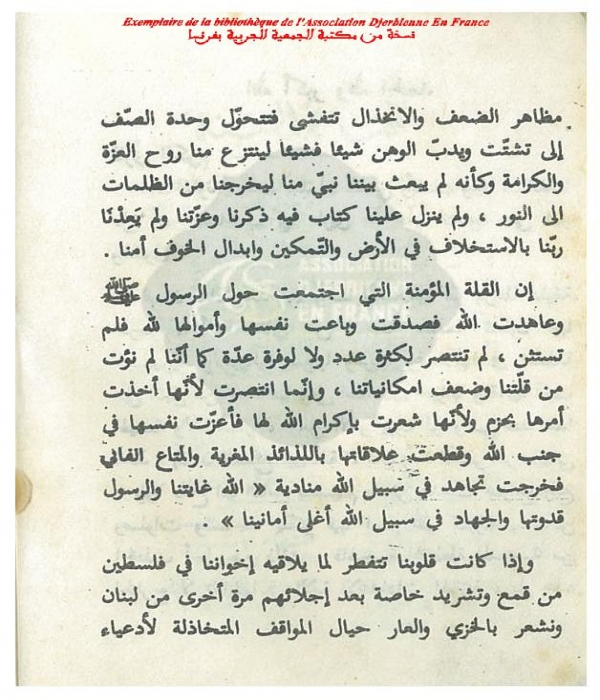 Exemplaire de la bibliothèque de l'Association Djerbienne En France
نسخة من مكتبة الجمعية الجربية بفرنسا
مظاهر الضعف والانخذال تتفشى فتتحوّل وحدة الصّف
إلى تشقّت ويدبّ الوهن شيئا فشيئا لينتزع منا روح العزّة
والكرامة وكأنه لم يبعث بيننا نبيّ منا ليخرجنا من الظلمات
الى النور ، ولم ينزل علينا كتاب فيه ذكرنا وعزّتنا ولم يَعِدْنَا
ربّنا بالاستخلاف في الأرض والتّمكين وابدال الخوف أمنا .
إن القلة المؤمنة التي اجتمعت حول الرسول ﷺ
وعاهدت الله فصدقت وباعت نفسها وأموالها لله فلم
تستثن ، لم تنتصر لكثرة عدد ولا لوفرة عدّة كما أنّنا لم نؤت
من قلّتنا وضعف امكانياتنا ، وإنّما انتصرت لأنّها أخذت
أمرها بحزم ولأنّها شعرت بإكرام الله لها فأعزّت نفسها في
جنب الله وقطعت علاقاتها باللذائذ المغرية والمتاع الفاني
فخرجت تجاهد في سبيل الله منادية « الله غايتنا والرسول
قدوتنا والجهاد في سبيل الله أغلى أمانينا » .
وإذا كانت قلوبنا تتفطر لما يلاقيه إخواننا في فلسطين
من قمع وتشريد خاصة بعد إجلائهم مرة أخرى من لبنان
ونشعر بالخزي والعار حيال المواقف المتخاذلة لأدعياء
ASSOCIATION
EN FRANCE